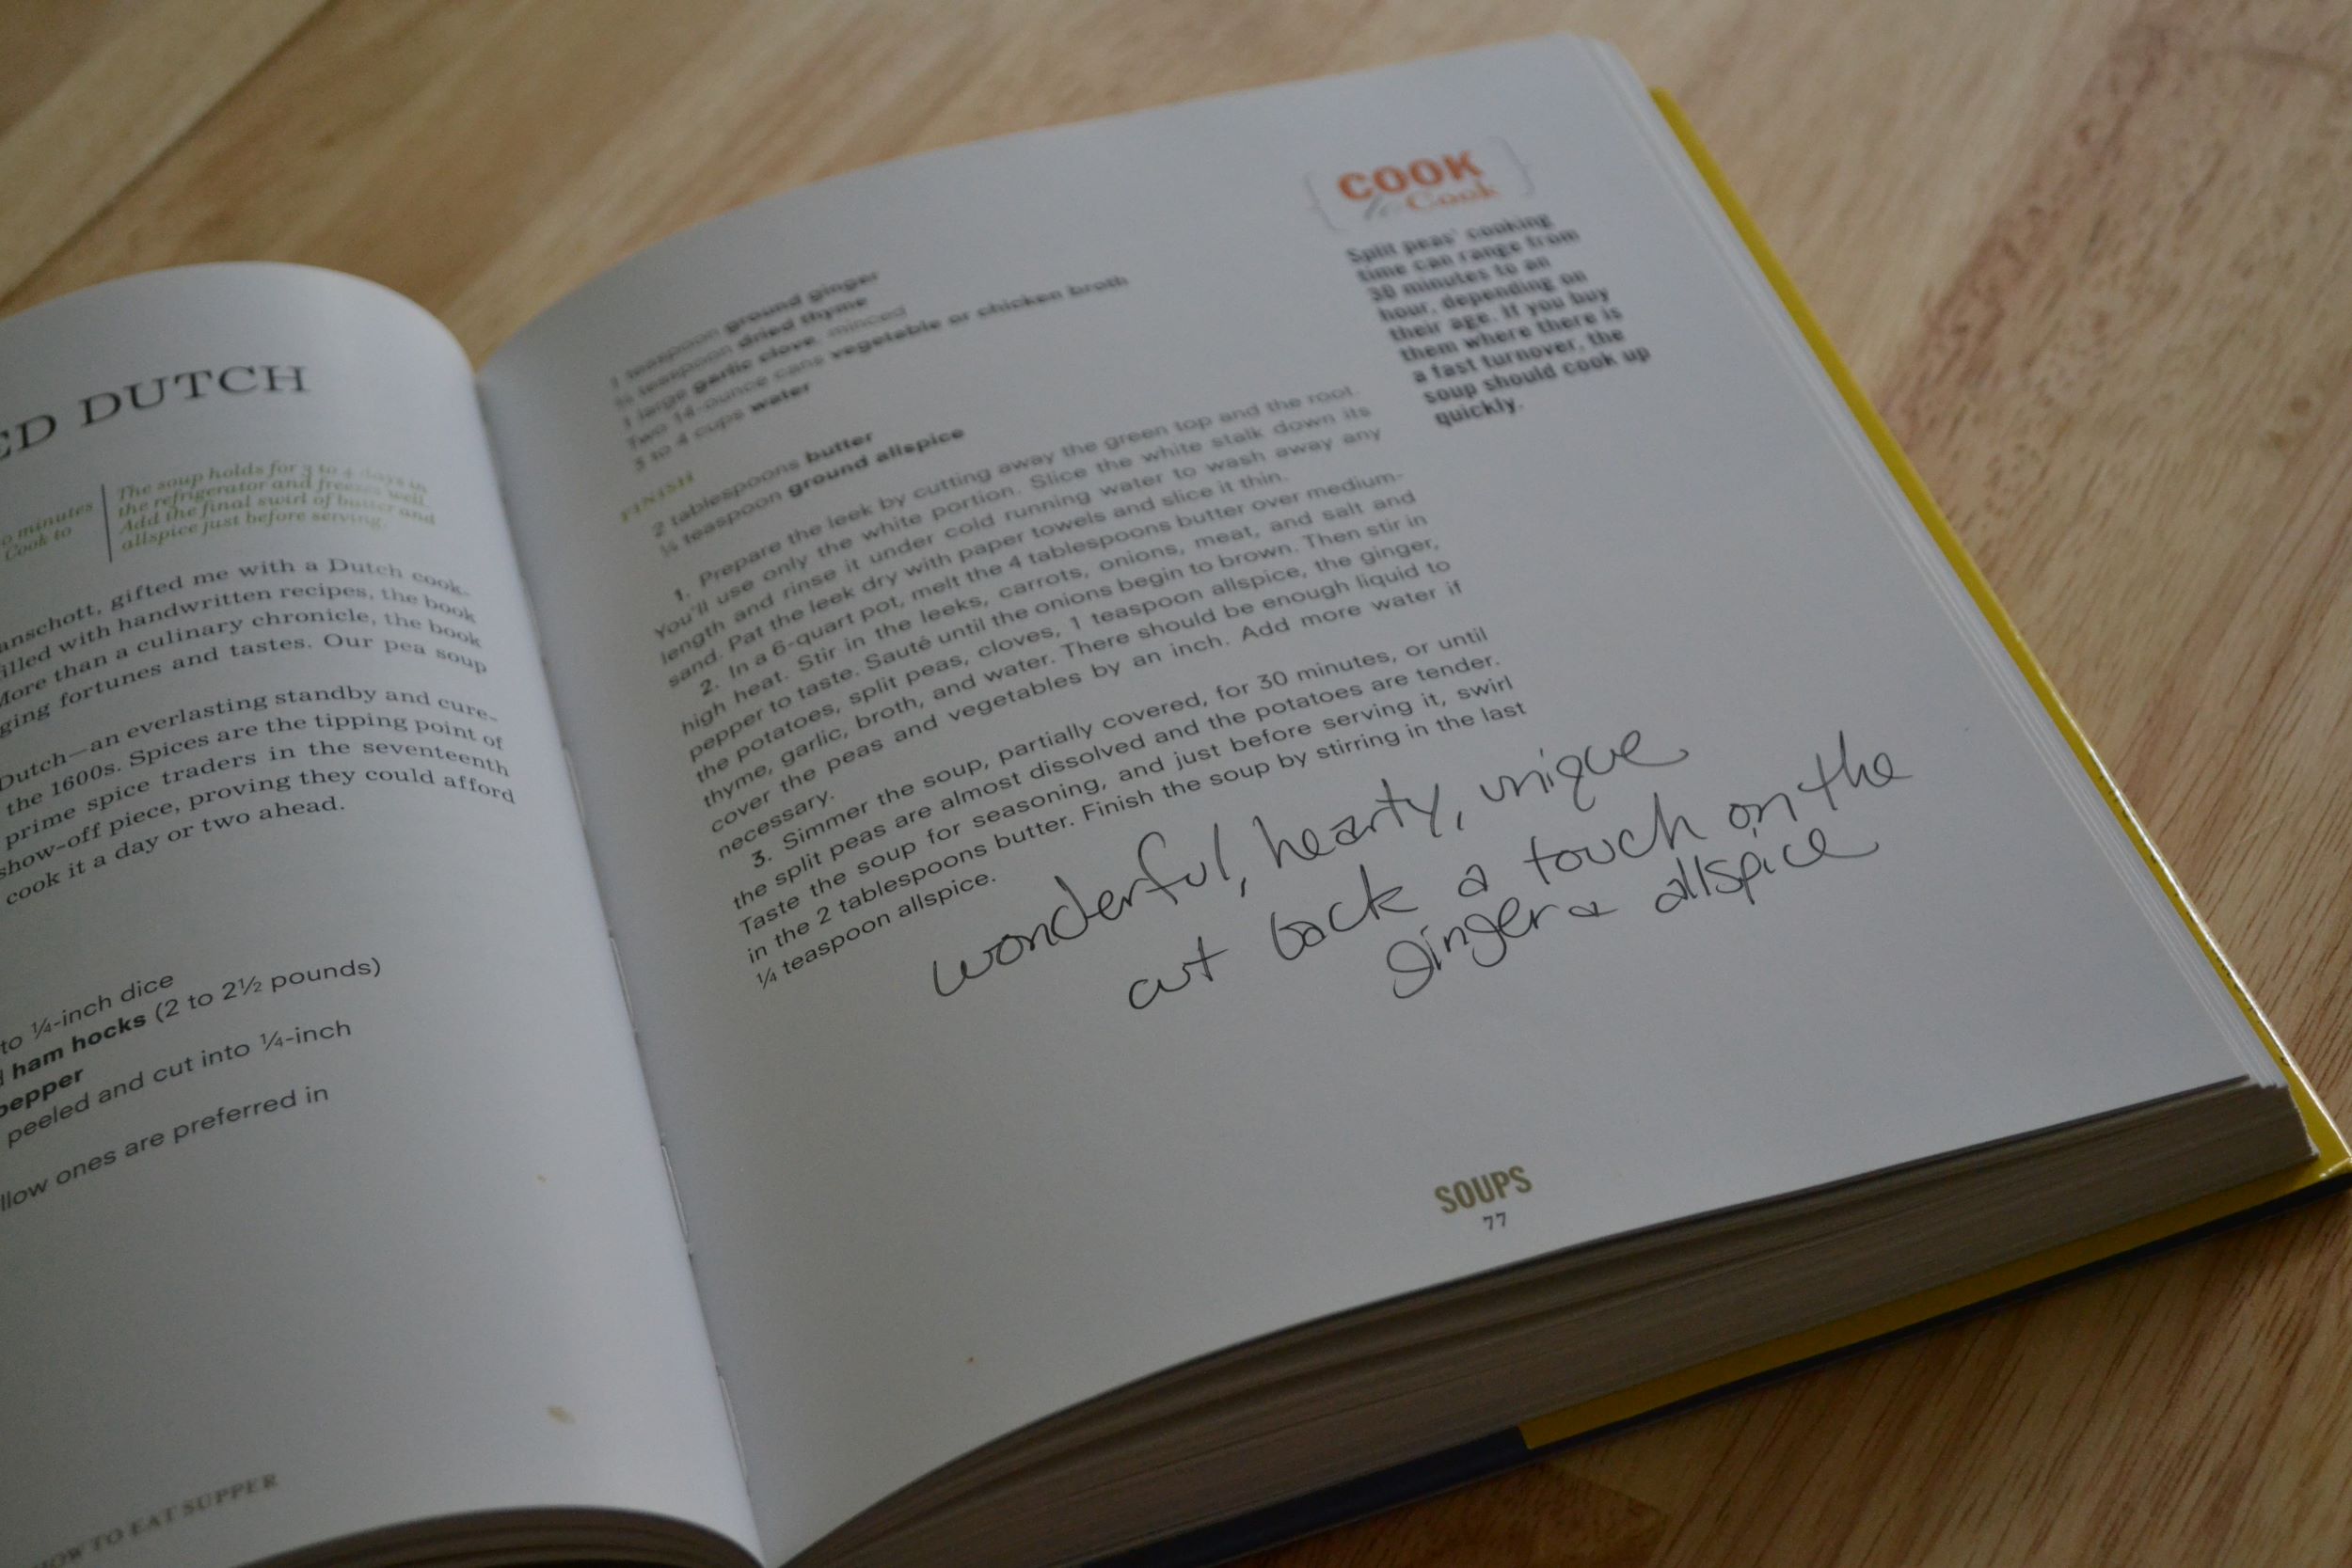 ED DUTCH
o minutes
Cook to
The soup holds for 3 to 4 days in
the refrigerator and freezes well.
Add the final swirl of butter and
allspice just before serving.
anschott, gifted me with a Dutch cook-
illed with handwritten recipes, the book
More than a culinary chronicle, the book
ging fortunes and tastes. Our pea soup
Dutch—an everlasting standby and cure-
the 1600s. Spices are the tipping point of
prime spice traders in the seventeenth
show-off piece, proving they could afford
cook it a day or two ahead.
to ¼-inch dice
ham hocks (2 to 2½ pounds)
pepper
peeled and cut into ¼-inch
llow ones are preferred in
HOW TO EAT SUPPER
1 teaspoon ground ginger
teaspoon dried thyme
1 large garlic clove, minced
Two 14-ounce cans vegetable or chicken broth
3 to 4 cups water
FINISH
2 tablespoons butter
¼ teaspoon ground allspice
1. Prepare the leek by cutting away the green top and the root.
You'll use only the white portion. Slice the white stalk down its
length and rinse it under cold running water to wash away any
sand. Pat the leek dry with paper towels and slice it thin.
2. In a 6-quart pot, melt the 4 tablespoons butter over medium-
high heat. Stir in the leeks, carrots, onions, meat, and salt and
pepper to taste. Sauté until the onions begin to brown. Then stir in
the potatoes, split peas, cloves, 1 teaspoon allspice, the ginger,
thyme, garlic, broth, and water. There should be enough liquid to
cover the peas and vegetables by an inch. Add more water if
necessary.
3. Simmer the soup, partially covered, for 30 minutes, or until
the split peas are almost dissolved and the potatoes are tender.
Taste the soup for seasoning, and just before serving it, swirl
in the 2 tablespoons butter. Finish the soup by stirring in the last
¼ teaspoon allspice.
wonderful, hearty, unique
cut back a touch on the
ginger & allspice
COOK
to Cook
Split peas' cooking
time can range from
30 minutes to an
hour, depending on
their age. If you buy
them where there is
a fast turnover, the
soup should cook up
quickly.
SOUPS
77